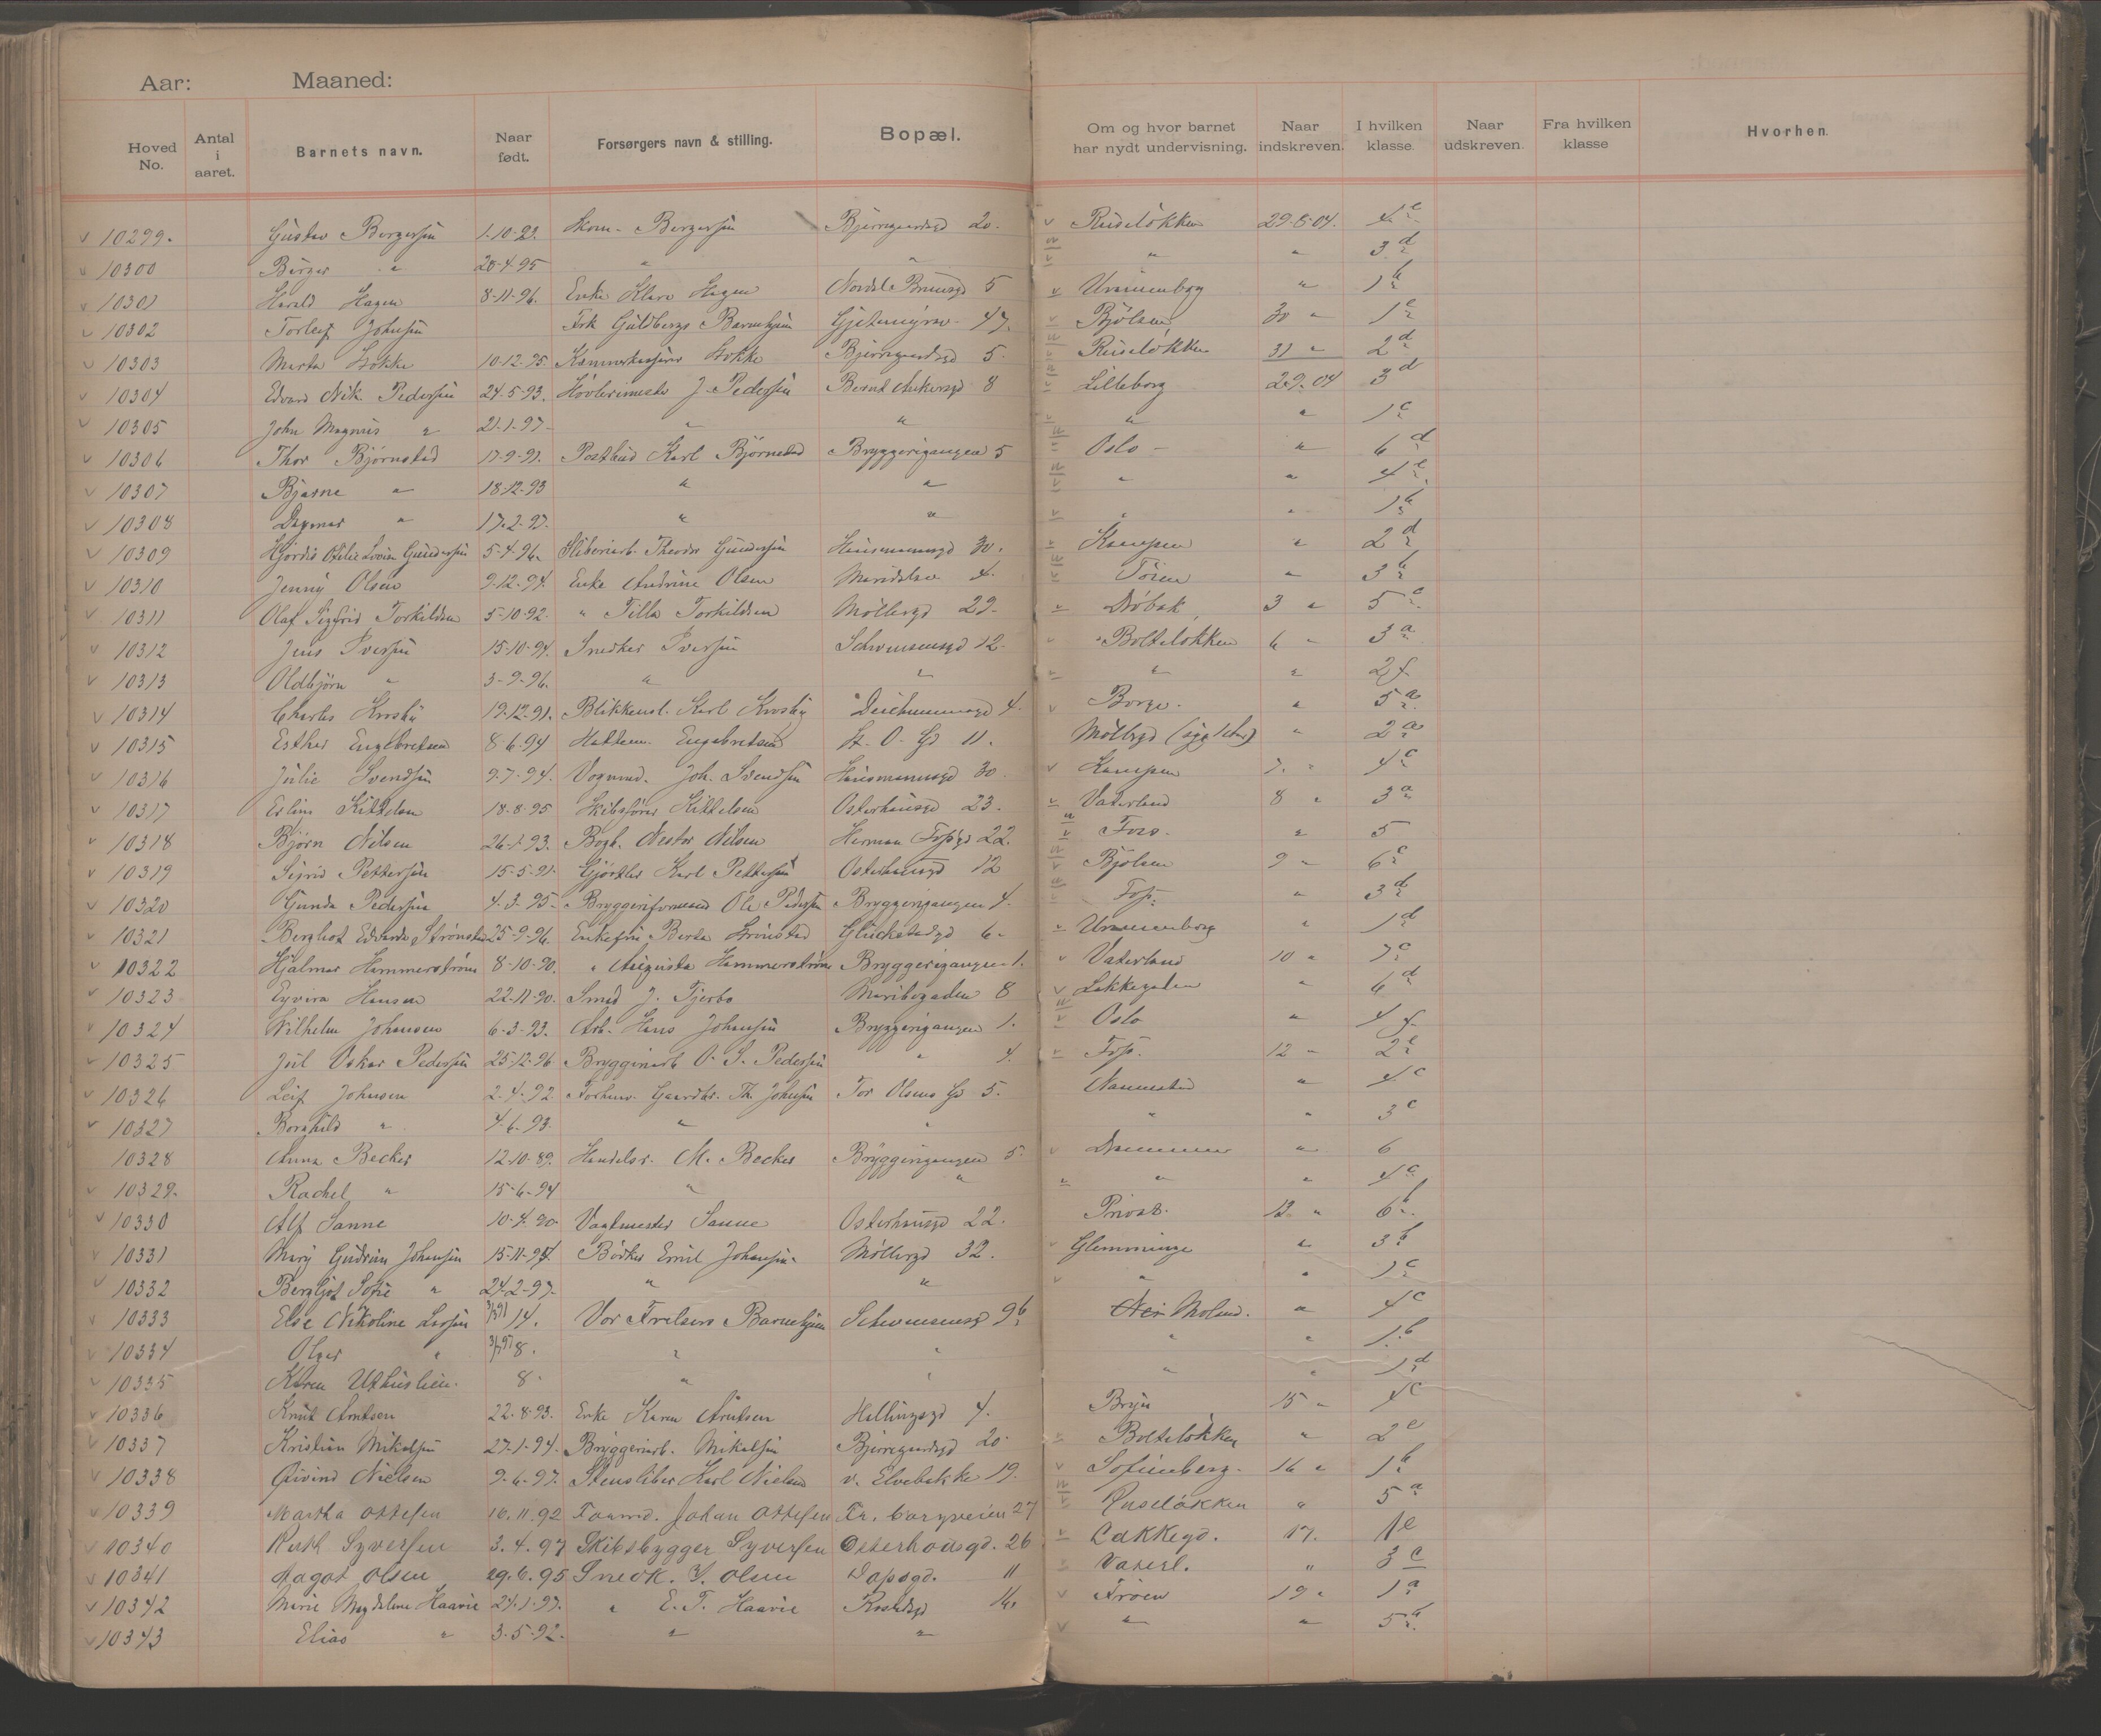 Aar: Maaned:
Hoved No. Antal i aaret. Barnets navn. Naar født. Forsørgers navn & stilling. Bopæl. Om og hvor barnet har nydt undervisning. Naar indskreven. I hvilken klasse. Naar udskreven. Fra hvilken klasse Hvorhen.
10299. Gustav Bergersen 1-10-93. Skom. Bergersen Bjerregaardsgd 20. Ruseløkken 29-8-04. 4 e
10300 Birger " 28-4-95 " " " " 3 d
10301 Harald Hagen 8-11-96. Enke Klara Hagen Nordal Brunsgd 5 Uranienborg " 1 b
10302 Torleif Johnsen Frk Guldbergs Barnehjem Gjetemyrsv. 47. Bjølsen 30 " 1 e
10303 Marta Holke 10-12-95. Bjerregaardsgd 5. Ruseløkken 31 " 2 d
10304 Edvard Nik. Pedersen 24-5-93. Høvlerimester J. Pedersen Bernt Ankersgd 8 Lilleborg 2-9-04 3 d
10305 John Magnus " 21-1-97. " " " " 1 c
10306 Thor Bjørnstad 17-9-91. Postbud Karl Bjørnstad Bryggerigangen 5 Oslo - " 6 d
10307 Bjarne " 18-12-93 " " " " 4 e
10308 Dagmar " 17-2-97. " " " " 1 b
10309 Hjørdis Otilie Lovise Gundersen 5-4-96. Sliberiarb. Theodor Gundersen Hausmannsgd 30. Kampen " 2 d
10310 Jenny Olsen 9-12-94. Enke Andrine Olsen Maridalsv 4. Tøien " 3 b
10311 Olaf Sigfrid Torkildsen 5-10-92. " Tilla Torkildsen Møllergd 29. Drøbak 3 " 5 c
10312 Jens Iversen 15-10-94. Snedker Iversen Schwensensgd 12. Bolteløkken 6 " 3 a
10313 Oldbjørn " 3-9-96. " " " " 2 f.
10314 Charles Krosby 19-12-91. Blikkensl. Karl Krosby Deichmannsgd 4. Borge. " 5 a
10315 Esther Engebretsen 8-6-94 Hattem. Engebretsen St. O. Gd 11. Møllergd " 2 a
10316 Julie Svendsen 9-7-94. Vognmd. Joh. Svendsen Hausmannsgd 30. Kampen 7. " 4 c
10317 Erling Kittelsen 18-8-95 Skibsfører Kittelsen Osterhausgd 23. Vaterland 8 " 3 a
10318 Bjørn Nilsen 26-1-93. Bogh. Nestor Nilsen Herman Fossgd 22. Foss. " 5
10319 Sigrid Pettersen 15-5-91. Gjørtler Karl Pettersen Osterhausgd 12 Bjølsen 9 " 6 c
10320 Gunda Pedersen 4-3-95. Bryggeriformand Ole Pedersen Bryggerigangen 4. Foss. " 3 d
10321 Bergliot Edvarda Strønstad 25-9-96. Enkefru Berta Strønstad Glückstadsgd 6. Uranienborg " 1 d
10322 Hjalmar Hammerstrøm 8-10-90. " Augusta Hammerstrøm Bryggerigangen 1. Vaterland 10 " 7 c
10323 Eyvira Hansen 22-11-90. Smed J. Tjerbo Maribogaden 8 Lakkegaden " 6 d
10324 Vilhelm Johansen 6-3-93. Arb. Hans Johansen Bryggerigangen 1. Oslo " 4 f.
10325 Jul Oskar Pedersen 25-12-96 Bryggeriarb O. S. Pedersen " 4. Foss. 12 " 2 e
10326 Leif Johnsen 2-4-92. Forhenv. Gaardbr. Th. Johnsen Tor Olsens Gd 5. Nannestad " 4 c
10327 Borghild " 4-6-93. " " " " 3 c
10328 Anna Becker 12-10-89. Handelsr. M. Becker Bryggerigangen 5. Drammen " 6
10329. Rachel " 15-6-94 " " " " 4 c
10330 Alf Sanne 10-4-90. Vagtmester Sanne Osterhausgd 22. Privat. 13 " 6 b
10331 Mary Gudrun Johansen 15-11-94. Bødker Emil Johansen Møllergd 32. Glemminge " 3 b
10332 Bergljot Sofie " 24-2-97. " " " " 1 c
10333 Else Nikoline Larsen 14. Vor Frelsers Barnehjem Schwensensgd 9 b Moland. " 4 c
10334 Olger " 8. " " " " 1 b
10335 Karen Uthuslien. 8. " " " " 1 d
10336 Knut Arntsen 22-8-93. Enke Karen Arntsen Hellingsgd 4. Bryn 15 " 4 c
10337 Kristian Mikalsen 27-1-94. Bryggeriarb. Mikalsen Bjerregaardsgd 20 Bolteløkken " 2 e
10338 Øivind Nielsen 9-6-97. Stensliber Karl Nielsen v. Elvebakke 19. Sofienberg. 16 " 1 b
10339 Martha Ottesen 16.11.92 Formd. Johan Ottesen Fr. borgveien 27 Ruseløkken " 5 a
10340 Ruth Syversen 3.4.97 Skibsbygger Syversen Osterhausgd. 26 Lakkegd. 17. 1 e
10341 Aagot Olsen 29.6.95 Snedk. J. Olsen Dapsgd. 11 Vaterl. " 3 c
10342 Marie Magdalene Haavie 24-1-97. " E. T. Haavie Rostedsgd 16. Frøen 19 " 1 a
10343 Elias " 3-5-92. " " " " 5 b